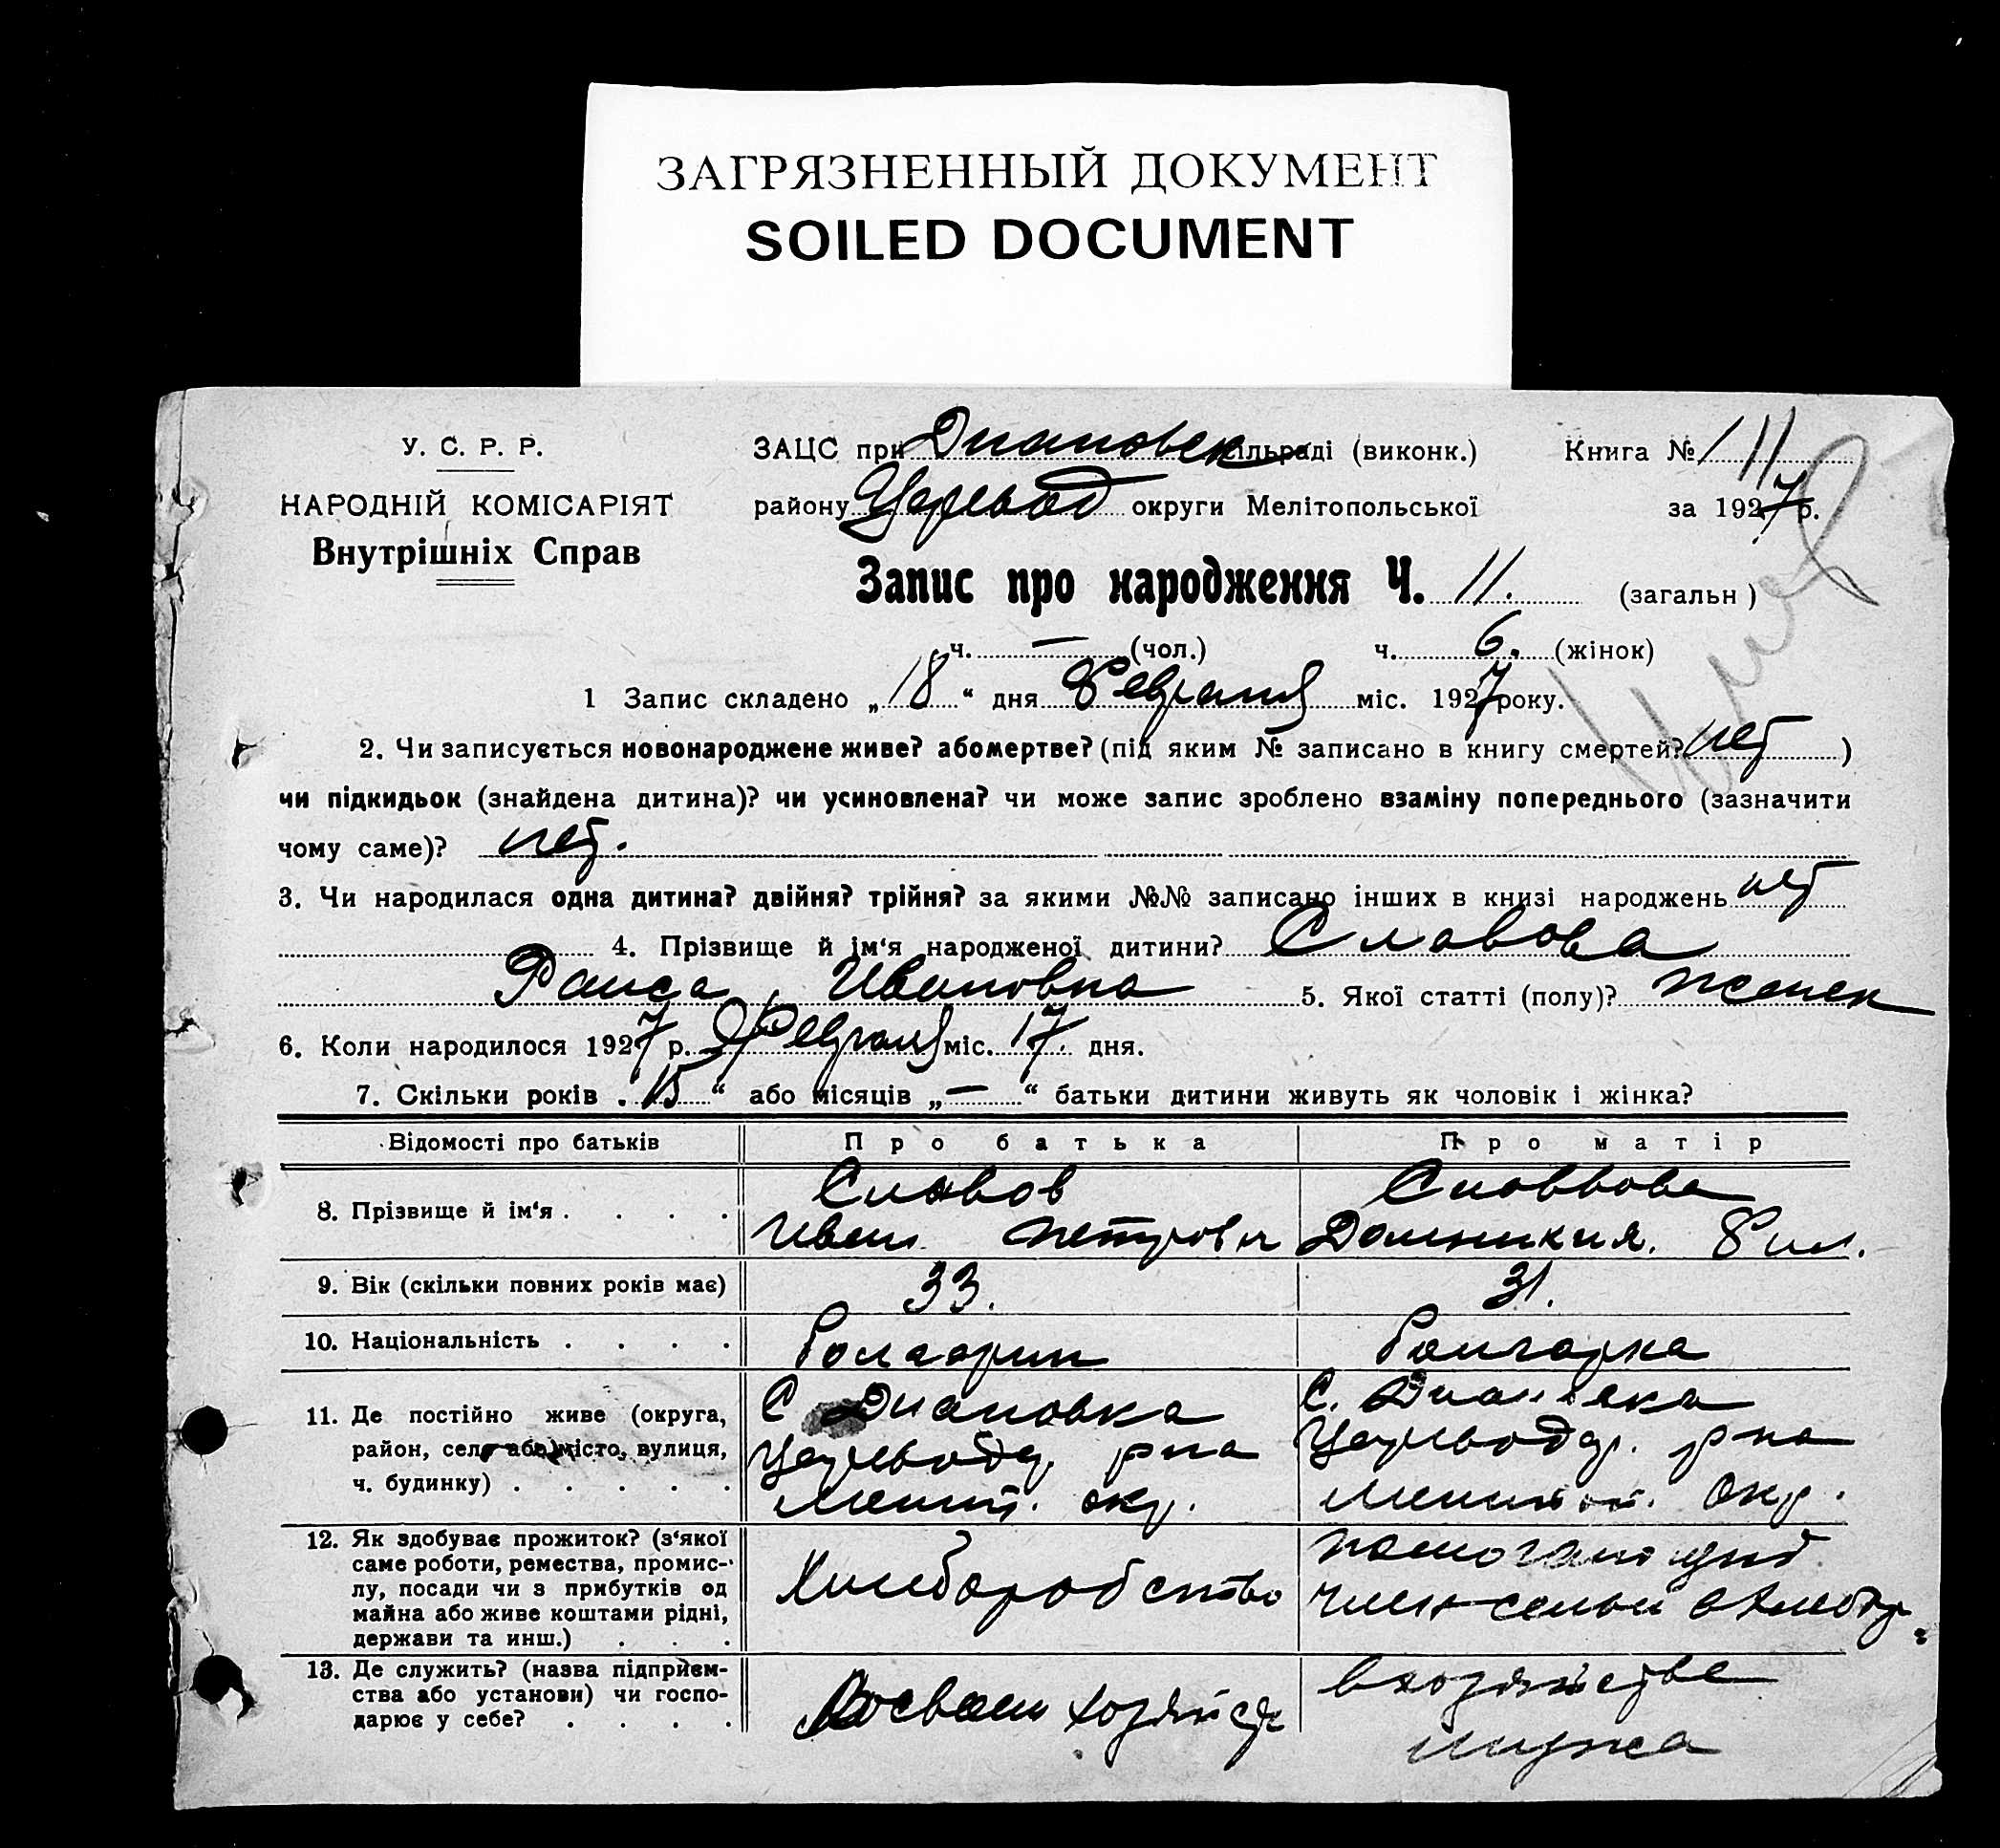 ЗАГРЯЗНЕННЫЙ ДОКУМЕНТ
SOILED DOCUMENT
У. С. Р. Р.
НАРОДНІЙ КОМІСАРІЯТ
Внутрішніх Справ
ЗАЦС при Диановск сільраді (виконк.)
району Царевод округи Мелітопольської
Книга № 11
за 1927 р.
Запис про народження Ч. 11. (загальн)
ч. — (чол.) ч. 6. (жінок)
1 Запис складено „18“ дня Февраля міс. 1927 року.
2. Чи записується новонароджене живе? або мертве? (під яким № записано в книгу смертей? нет )
чи підкидьок (знайдена дитина)? чи усиновлена? чи може запис зроблено взаміну попереднього (зазначити
чому саме)? нет.
3. Чи народилася одна дитина? двійня? трійня? за якими №№ записано інших в книзі народжень нет
4. Прізвище й ім‘я народженої дитини? Славова
Раиса Ивановна 5. Якої статті (полу)? женск
6. Коли народилося 1927 р. Февраля міс. 17. дня.
7. Скільки років „15“ або місяців „—“ батьки дитини живуть як чоловік і жінка?
Відомості про батьків Про батька Про матір
8. Прізвище й ім‘я . . . .
Славов
Иван Петрович
Славова
Домникия. Фил.
9. Вік (скільки повних років має) 33. 31.
10. Національність . . . . Болгарин Болгарка
11. Де постійно живе (округа,
район, село або місто, вулиця,
ч. будинку) . . . . .
С Диановка
Царевода. рна
Мелит. окр.
С. Диановка
Цареводар. рна
Мелитоп. окр.
12. Як здобуває прожиток? (з‘якої
саме роботи, ремества, промис-
лу, посади чи з прибутків од
майна або живе коштами рідні,
держави та инш.) . . .
Хлеборобство
помогающий
член семьи в хлебор.
13. Де служить? (назва підприєм-
ства або установи) чи госпо-
дарює у себе? . . . .
своем хозяйст
в хозяйстве
мужа